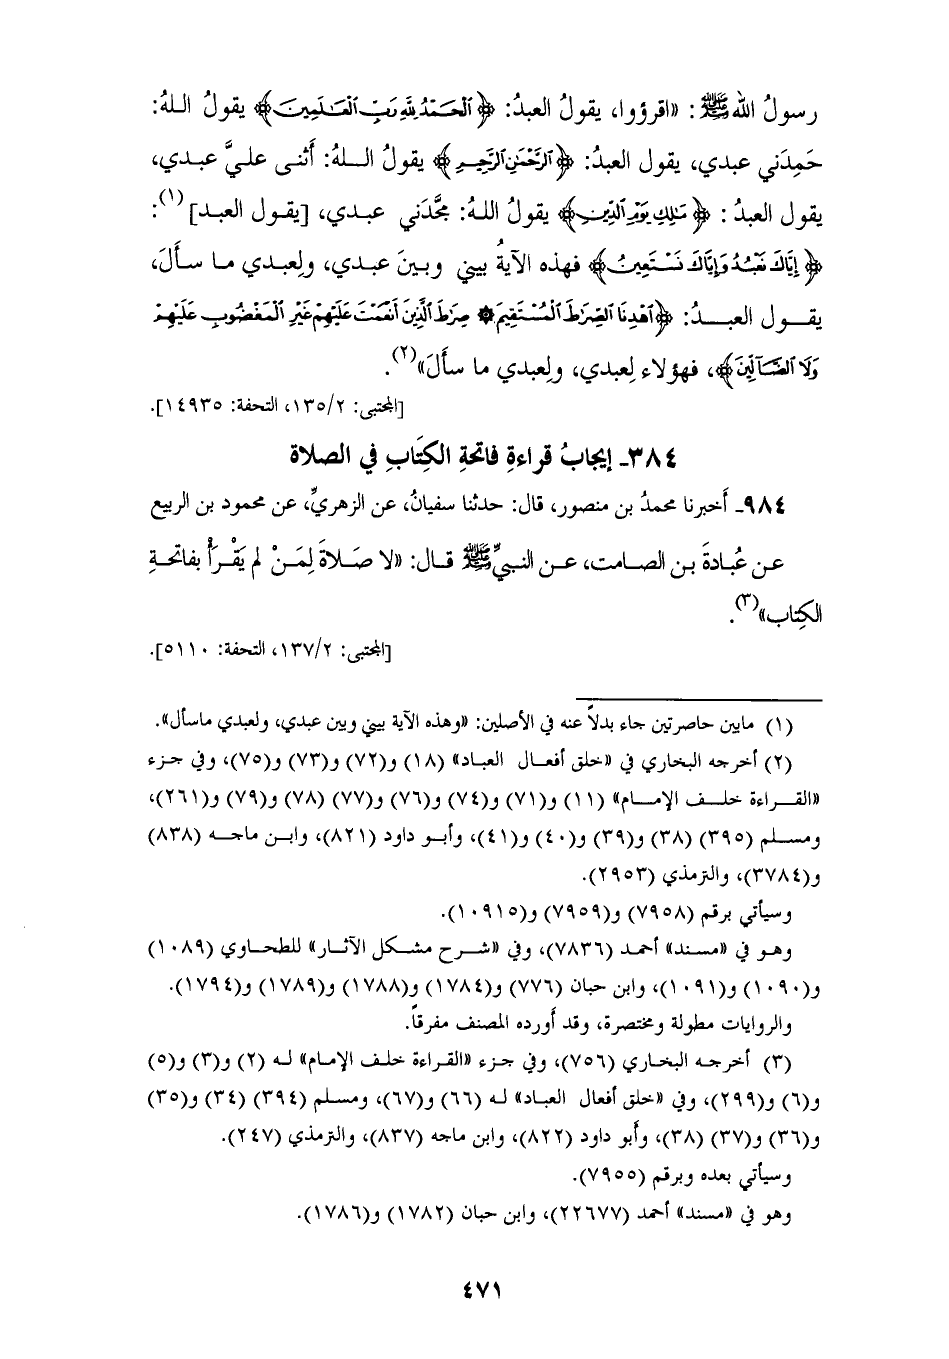 رسولُ الله ﷺ: «اقرؤوا، يقولُ العبدُ: ﴿ٱلْحَمْدُ لِلَّهِ رَبِّ ٱلْعَـٰلَمِينَ﴾ يقولُ اللهُ:
حَمِدَني عبدي، يقول العبدُ: ﴿ٱلرَّحْمَـٰنِ ٱلرَّحِيمِ﴾ يقولُ اللهُ: أَثنى عليَّ عبدي،
يقول العبدُ: ﴿مَـٰلِكِ يَوْمِ ٱلدِّينِ﴾ يقولُ اللهُ: مجَّدَني عبدي، [يقول العبد](١):
﴿إِيَّاكَ نَعْبُدُ وَإِيَّاكَ نَسْتَعِينُ﴾ فهذه الآيةُ بيني وبينَ عبدي، ولِعبدي ما سأَلَ،
يقول العبدُ: ﴿ٱهْدِنَا ٱلصِّرَٰطَ ٱلْمُسْتَقِيمَ * صِرَٰطَ ٱلَّذِينَ أَنْعَمْتَ عَلَيْهِمْ غَيْرِ ٱلْمَغْضُوبِ عَلَيْهِمْ
وَلَا ٱلضَّآلِّينَ﴾، فهؤلاء لِعبدي، ولِعبدي ما سأَلَ»(٢).
[المجتبى: ١٣٥/٢، التحفة: ١٤٩٣٥].
٣٨٤ـ إيجابُ قراءةِ فاتحةِ الكِتَابِ في الصلاة
٩٨٤ـ أَخبرنا محمدُ بن منصور، قال: حدثنا سفيانُ، عن الزهريِّ، عن محمود بن الربيع
عن عُبادةَ بن الصامت، عن النبيِّ ﷺ قال: «لا صَلاةَ لِمَنْ لم يَقْرَأْ بفاتحةِ
الكِتاب»(٣).
[المجتبى: ١٣٧/٢، التحفة: ٥١١٠].
(١) مابين حاصرتين جاء بدلاً عنه في الأصلين: «وهذه الآية بيني وبين عبدي، ولعبدي ماسأل».
(٢) أخرجه البخاري في «خلق أفعال العباد» (١٨) و(٧٢) و(٧٣) و(٧٥)، وفي جزء
«القراءة خلف الإمام» (١١) و(٧١) و(٧٤) و(٧٦) و(٧٧) (٧٨) و(٧٩) و(٢٦١)،
ومسلم (٣٩٥) (٣٨) و(٣٩) و(٤٠) و(٤١)، وأبو داود (٨٢١)، وابن ماجه (٨٣٨)
و(٣٧٨٤)، والترمذي (٢٩٥٣).
وسيأتي برقم (٧٩٥٨) و(٧٩٥٩) و(١٠٩١٥).
وهو في «مسند» أحمد (٧٨٣٦)، وفي «شرح مشكل الآثار» للطحاوي (١٠٨٩)
و(١٠٩٠) و(١٠٩١)، وابن حبان (٧٧٦) و(١٧٨٤) و(١٧٨٨) و(١٧٨٩) و(١٧٩٤).
والروايات مطولة ومختصرة، وقد أورده المصنف مفرقاً.
(٣) أخرجه البخاري (٧٥٦)، وفي جزء «القراءة خلف الإمام» له (٢) و(٣) و(٥)
و(٦) و(٢٩٩)، وفي «خلق أفعال العباد» له (٦٦) و(٦٧)، ومسلم (٣٩٤) (٣٤) و(٣٥)
و(٣٦) و(٣٧) (٣٨)، وأَبو داود (٨٢٢)، وابن ماجه (٨٣٧)، والترمذي (٢٤٧).
وسيأتي بعده وبرقم (٧٩٥٥).
وهو في «مسند» أحمد (٢٢٦٧٧)، وابن حبان (١٧٨٢) و(١٧٨٦).
٤٧١